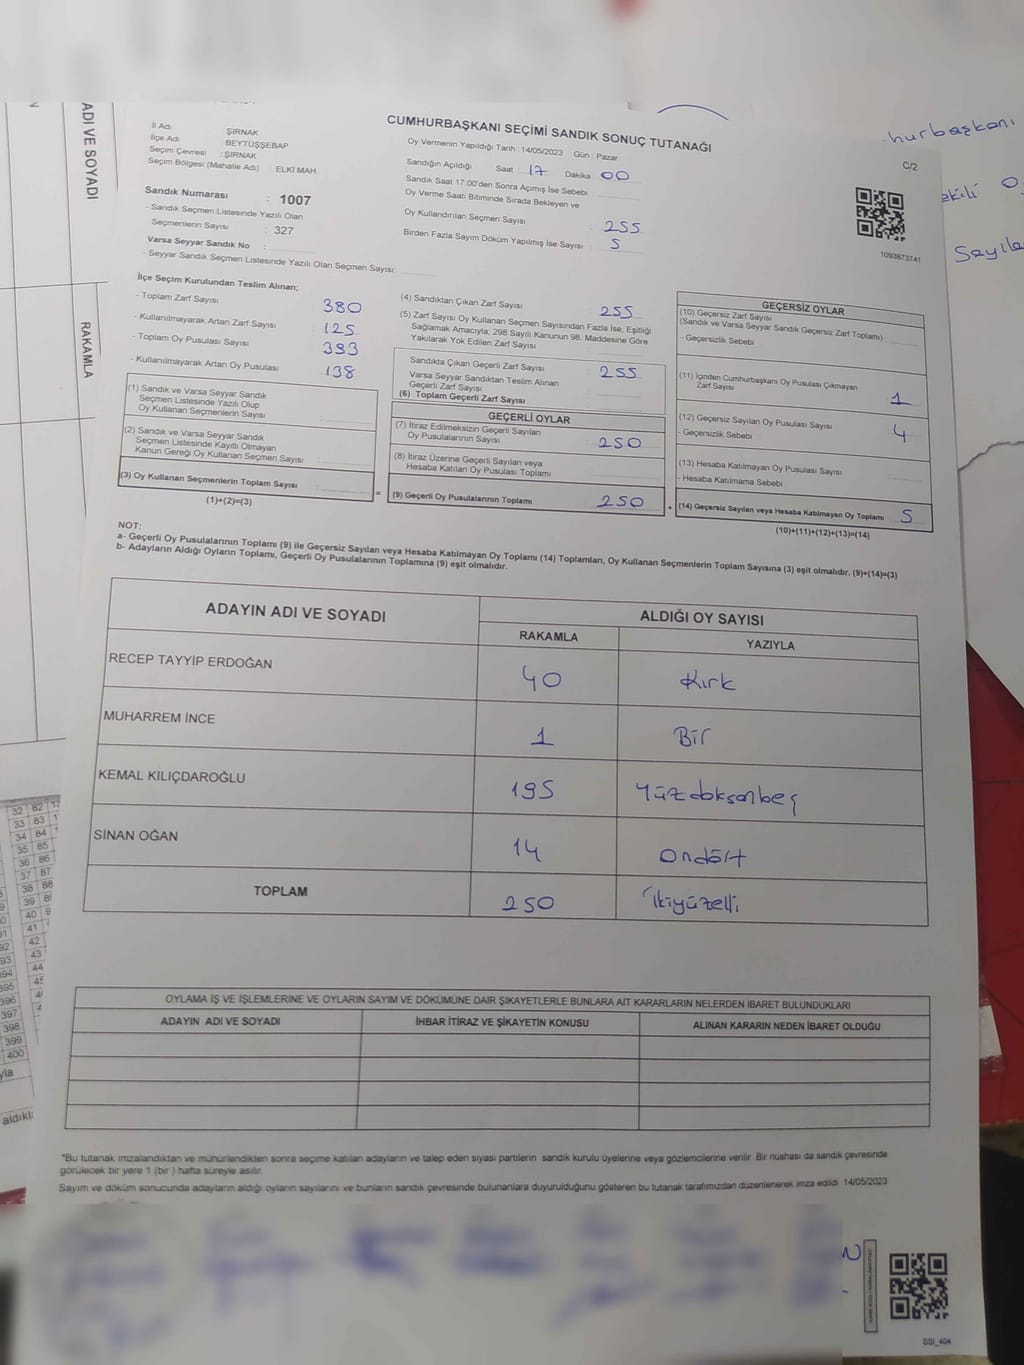 CUMHURBAŞKANI SEÇİMİ SANDIK SONUÇ TUTANAĞI
C/2
İl Adı ŞIRNAK
İlçe Adı BEYTÜŞŞEBAP
Seçim Çevresi : ŞIRNAK
Seçim Bölgesi (Mahalle Adı) ELKİ MAH.
Oy Vermenin Yapıldığı Tarih : 14/05/2023 Gün : Pazar
Sandığın Açıldığı Saat : 17 Dakika 00
Sandık Saat 17:00'den Sonra Açımış İse Sebebi
Oy Verme Saati Bitiminde Sırada Bekleyen ve
Oy Kullandırılan Seçmen Sayısı : 255
Birden Fazla Sayım Döküm Yapılmış İse Sayısı : 5
Sandık Numarası : 1007
- Sandık Seçmen Listesinde Yazılı Olan
Seçmenlerin Sayısı : 327
Varsa Seyyar Sandık No :
- Seyyar Sandık Seçmen Listesinde Yazılı Olan Seçmen Sayısı:
1093873741
İlçe Seçim Kurulundan Teslim Alınan;
- Toplam Zarf Sayısı 380
- Kullanılmayarak Artan Zarf Sayısı : 125
- Toplam Oy Pusulası Sayısı : 393
- Kullanılmayarak Artan Oy Pusulası : 138
(1) Sandık ve Varsa Seyyar Sandık
Seçmen Listesinde Yazılı Olup
Oy Kullanan Seçmenlerin Sayısı :
(2) Sandık ve Varsa Seyyar Sandık
Seçmen Listesinde Kayıtlı Olmayan
Kanun Gereği Oy Kullanan Seçmen Sayısı :
(3) Oy Kullanan Seçmenlerin Toplam Sayısı :
(1)+(2)=(3)
=
(4) Sandıktan Çıkan Zarf Sayısı : 255
(5) Zarf Sayısı Oy Kullanan Seçmen Sayısından Fazla İse, Eşitliği
Sağlamak Amacıyla; 298 Sayılı Kanunun 98. Maddesine Göre
Yakılarak Yok Edilen Zarf Sayısı
Sandıkta Çıkan Geçerli Zarf Sayısı : 255
Varsa Seyyar Sandıktan Teslim Alınan
Geçerli Zarf Sayısı
(6) Toplam Geçerli Zarf Sayısı
GEÇERLİ OYLAR
(7) İtiraz Edilmeksizin Geçerli Sayılan
Oy Pusulalarının Sayısı : 250
(8) İtiraz Üzerine Geçerli Sayılan veya
Hesaba Katılan Oy Pusulası Toplamı
(9) Geçerli Oy Pusulalarının Toplamı 250
+
GEÇERSİZ OYLAR
(10) Geçersiz Zarf Sayısı
(Sandık ve Varsa Seyyar Sandık Geçersiz Zarf Toplamı)
- Geçersizlik Sebebi :
(11) İçinden Cumhurbaşkanı Oy Pusulası Çıkmayan
Zarf Sayısı 1
(12) Geçersiz Sayılan Oy Pusulası Sayısı 4
- Geçersizlik Sebebi
(13) Hesaba Katılmayan Oy Pusulası Sayısı
- Hesaba Katılmama Sebebi
(14) Geçersiz Sayılan veya Hesaba Katılmayan Oy Toplamı 5
(10)+(11)+(12)+(13)=(14)
NOT:
a- Geçerli Oy Pusulalarının Toplamı (9) ile Geçersiz Sayılan veya Hesaba Katılmayan Oy Toplamı (14) Toplamları, Oy Kullanan Seçmenlerin Toplam Sayısına (3) eşit olmalıdır. (9)+(14)=(3)
b- Adayların Aldığı Oyların Toplamı, Geçerli Oy Pusulalarının Toplamına (9) eşit olmalıdır.
ADAYIN ADI VE SOYADI ALDIĞI OY SAYISI
RAKAMLA YAZIYLA
RECEP TAYYİP ERDOĞAN 40 Kırk
MUHARREM İNCE 1 Bir
KEMAL KILIÇDAROĞLU 195 Yüzdoksanbeş
SİNAN OĞAN 14 Ondört
TOPLAM 250 İkiyüzelli
OYLAMA İŞ VE İŞLEMLERİNE VE OYLARIN SAYIM VE DÖKÜMÜNE DAİR ŞİKAYETLERLE BUNLARA AİT KARARLARIN NELERDEN İBARET BULUNDUKLARI
ADAYIN ADI VE SOYADI İHBAR İTİRAZ VE ŞİKAYETİN KONUSU ALINAN KARARIN NEDEN İBARET OLDUĞU
*Bu tutanak imzalandıktan ve mühürlendikten sonra seçime katılan adayların ve talep eden siyasi partilerin sandık kurulu üyelerine veya gözlemcilerine verilir. Bir nüshası da sandık çevresinde
görülecek bir yere 1 (bir ) hafta süreyle asılır.
Sayım ve döküm sonucunda adayların aldığı oyların sayılarını ve bunların sandık çevresinde bulunanlara duyurulduğunu gösteren bu tutanak tarafımızdan düzenlenerek imza edildi. 14/05/2023
SSI_404
ADI VE SOYADI
RAKAMLA
hurbaşkanı
ekili
32 82
33 83
34 84
35 85
36 86
37 87
38 88
39
40
41
42
43
44
396
397
398
399
400